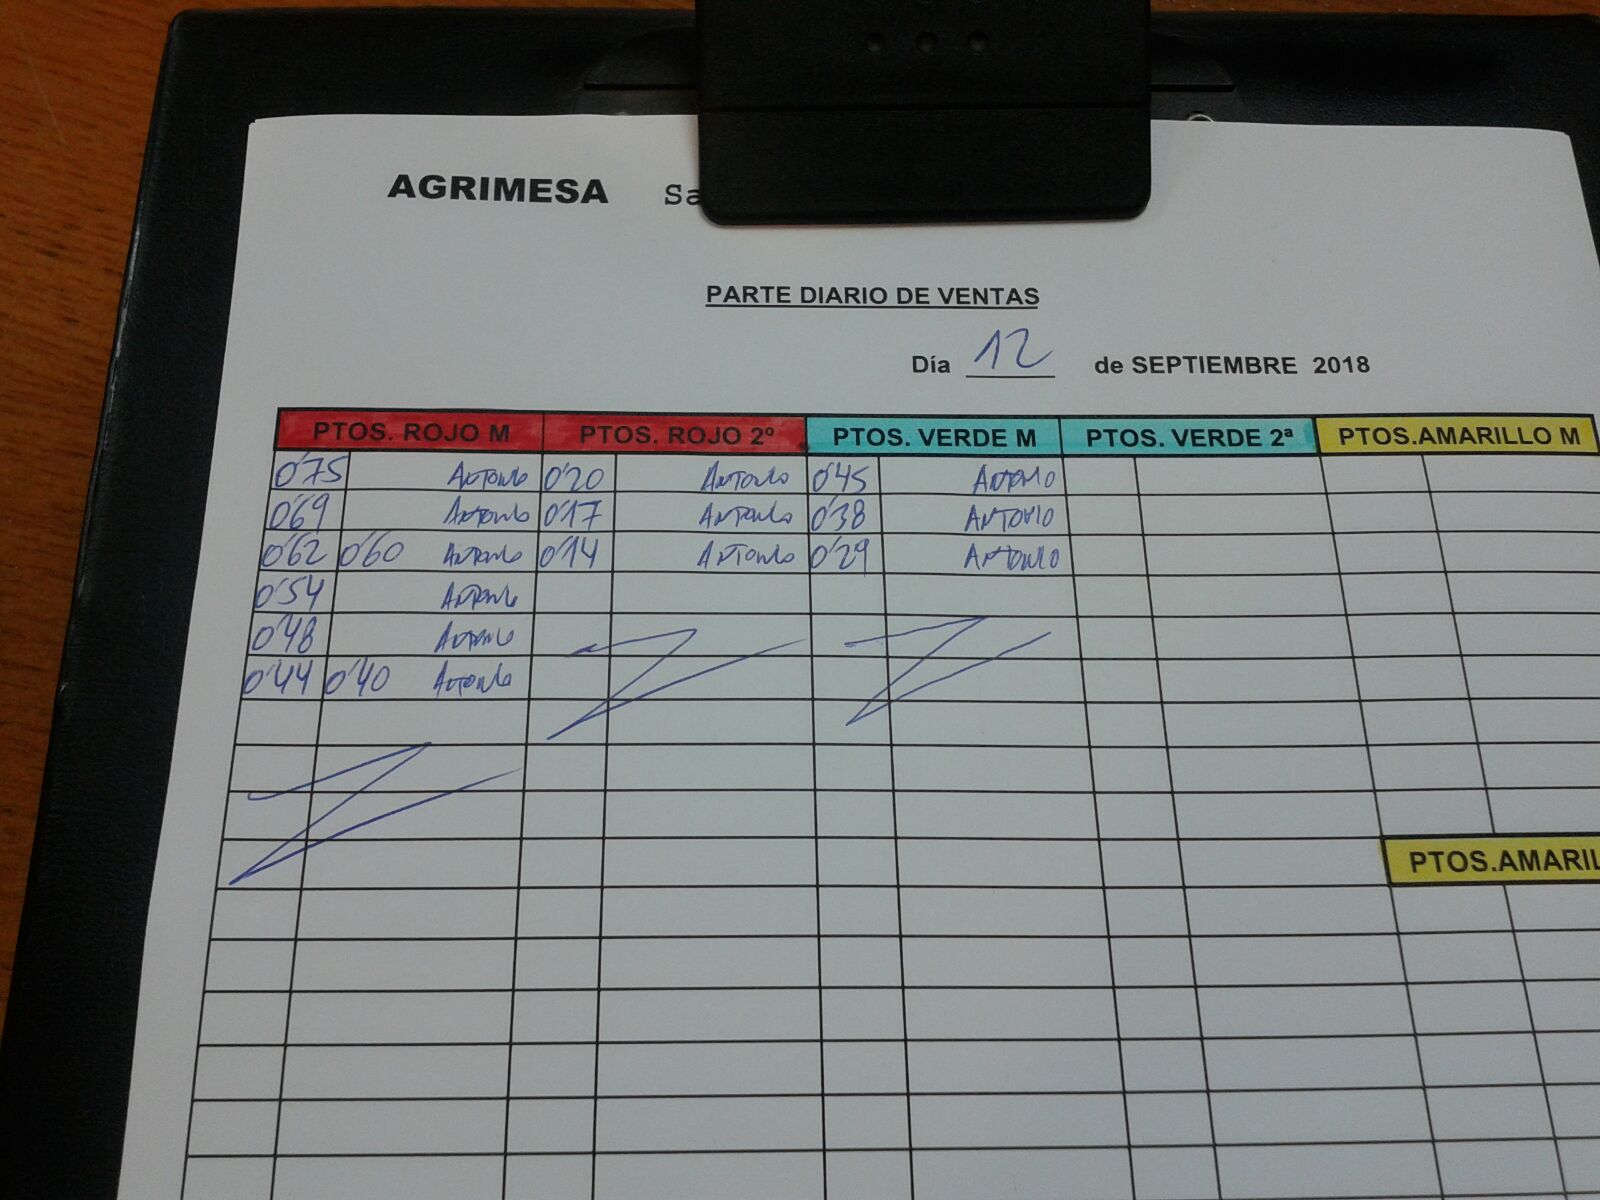 AGRIMESA Sa
PARTE DIARIO DE VENTAS
Día 12 de SEPTIEMBRE 2018
PTOS. ROJO M PTOS. ROJO 2º PTOS. VERDE M PTOS. VERDE 2ª PTOS.AMARILLO M
0'75 Antonio 0'20 Antonio 0'45 Antonio
0'69 Antonio 0'17 Antonio 0'38 ANTONIO
0'62 0'60 Antonio 0'14 Antonio 0'29 ANTONIO
0'54 Antonio
0'48 Antonio
0'44 0'40 Antonio
PTOS.AMARIL